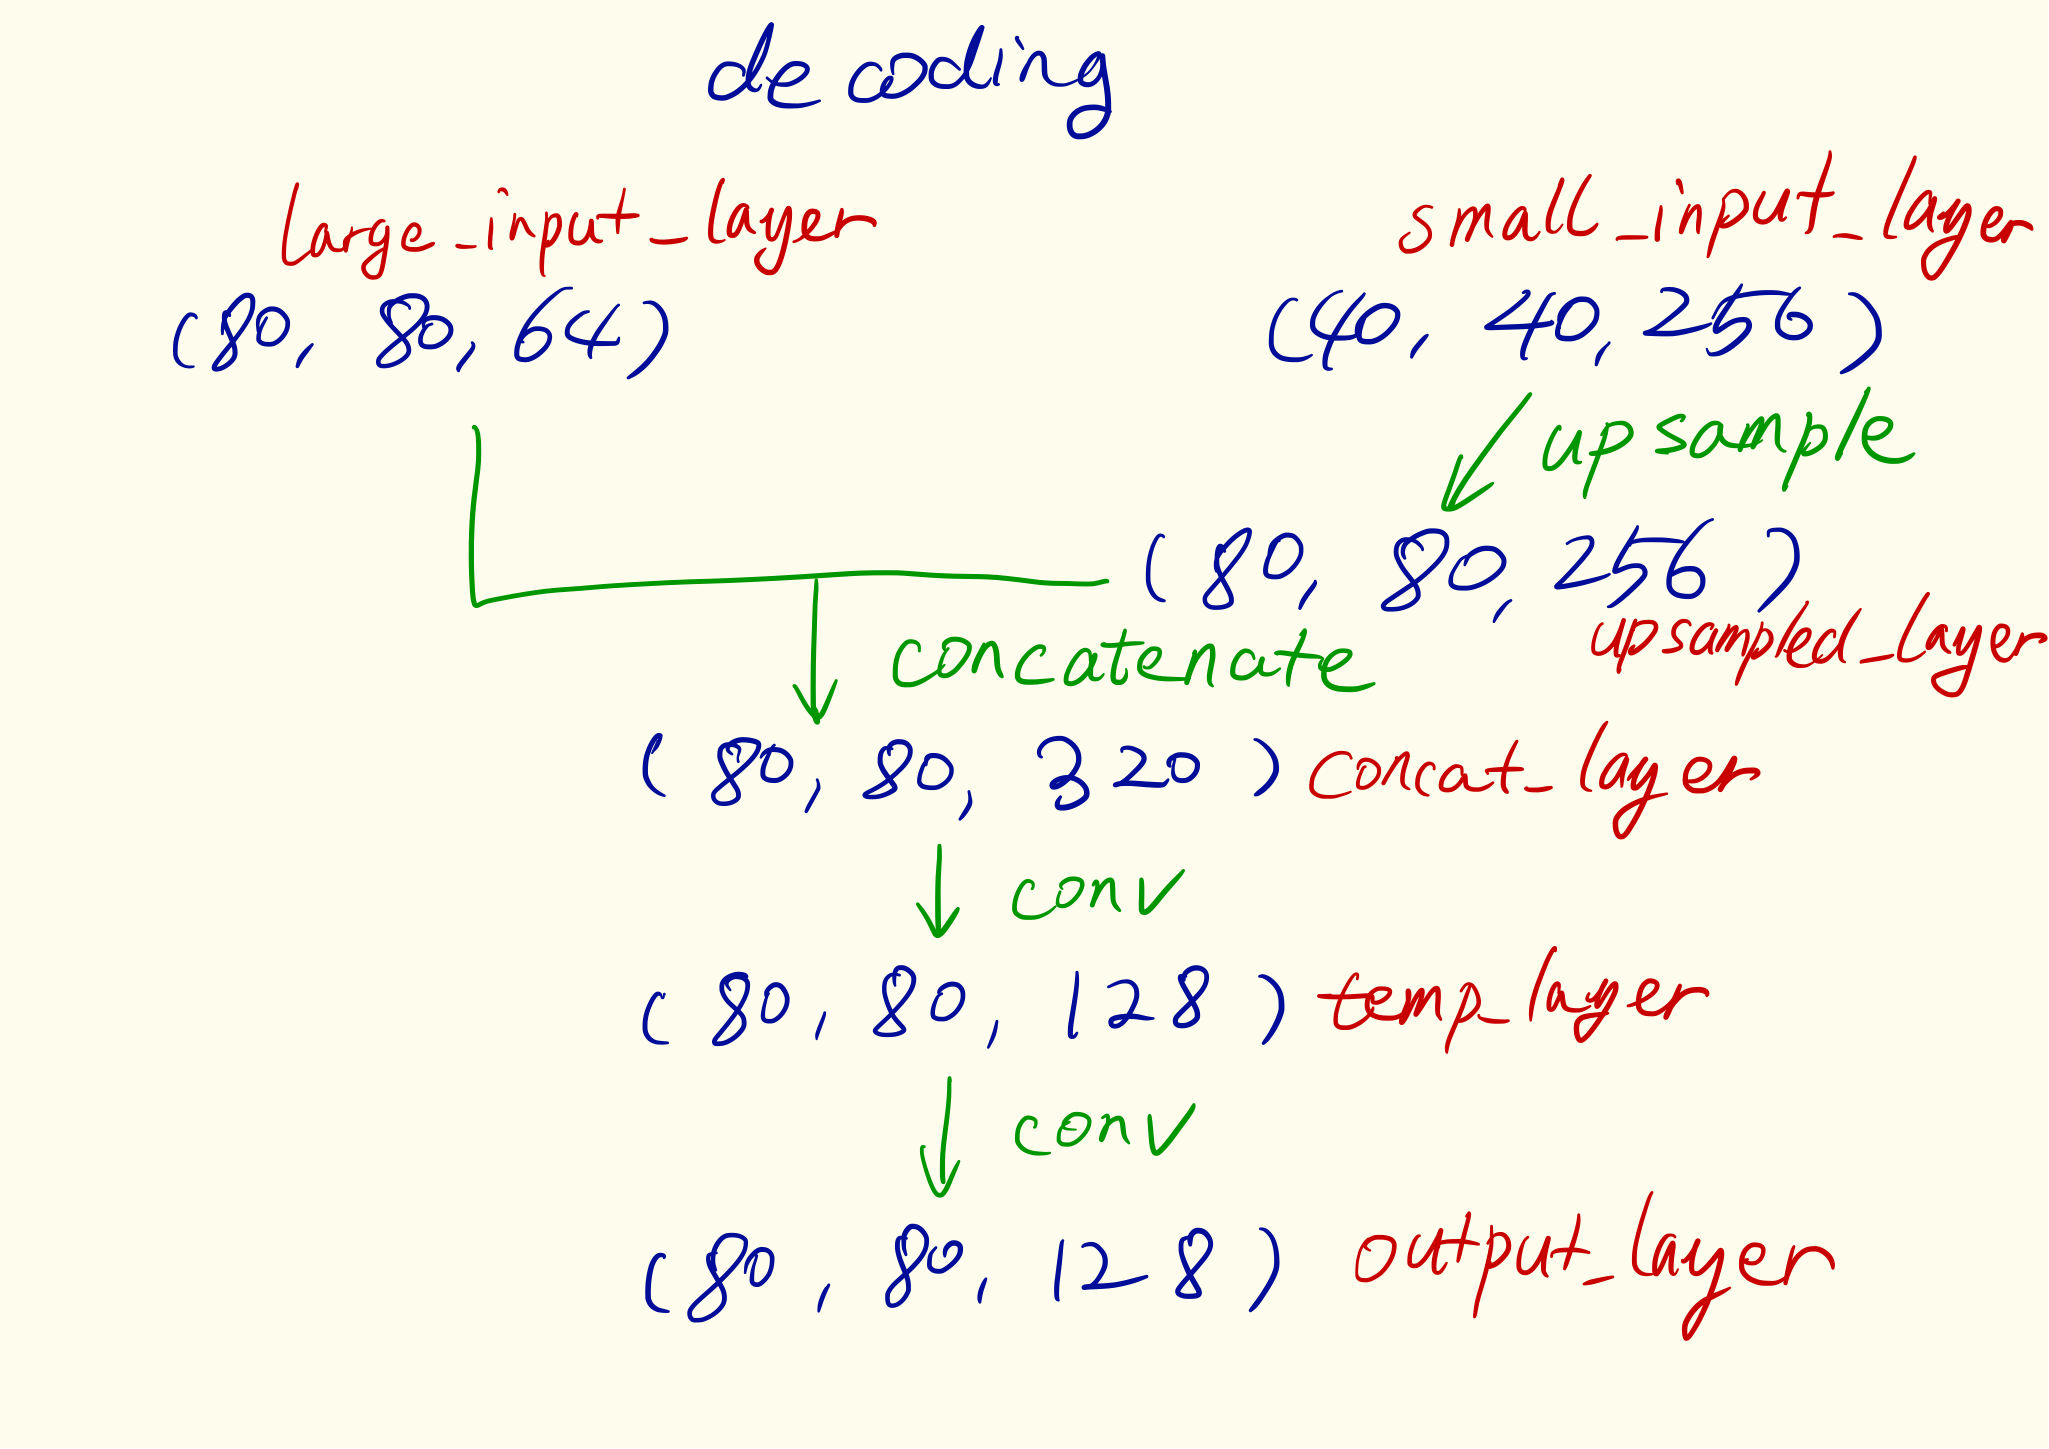 decoding
large_input_layer
small_input_layer
(80, 80, 64)
(40, 40, 256)
upsample
(80, 80, 256)
upsampled_layer
concatenate
(80, 80, 320) concat_layer
conv
(80, 80, 128) temp_layer
conv
(80, 80, 128) output_layer